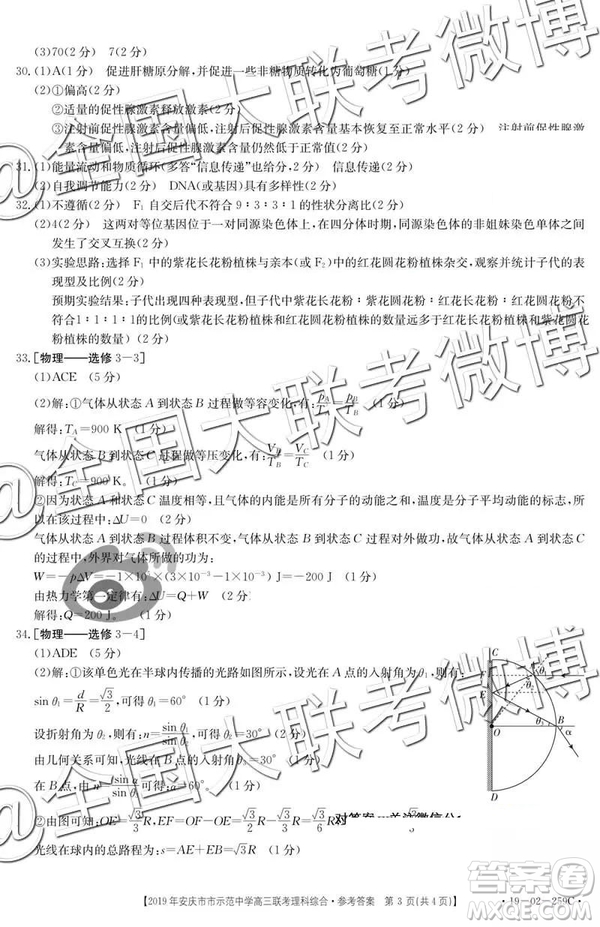 (3)70(2分) 7(2分)
30.(1)A(1分) 促进肝糖原分解,并促进一些非糖物质转化为葡萄糖(1分)
(2)①偏高(2分)
②适量的促性腺激素释放激素(2分)
③注射前促性腺激素含量偏低,注射后促性腺激素含量基本恢复至正常水平(2分) 注射前促性腺激素含量偏低,注射后高于正常值(2分)
31.(1)能量流动和物质循环(多答“信息传递”也给分,2分) 信息传递(2分)
(2)自我调节能力(2分) DNA(或基因)具有多样性(2分)
32.(1)不遵循(2分) F₁自交后代不符合9∶3∶3∶1的性状分离比(2分)
(2)4(2分) 这两对等位基因位于一对同源染色体上,在四分体时期,同源染色体的非姐妹染色单体之间发生了交叉互换(2分)
(3)实验思路:选择F₁中的紫花长花粉植株与亲本(或F₂)中的红花圆花粉植株杂交,观察并统计子代的表现型及比例(2分)
预期实验结果:子代出现四种表现型,但紫花长花粉∶紫花圆花粉∶红花长花粉∶红花圆花粉不符合1∶1∶1∶1,紫花长花粉植株和红花圆花粉植株的数量远多于红花长花粉植株和紫花圆花粉植株的数量(2分)
33.[物理——选修3-3]
(1)ACE (5分)
(2)解:①气体从状态A到状态B过程做等容变化,有:p_A/T_A=p_B/T_B (1分)
解得:T_A=900 K (1分)
气体从状态B到状态C过程做等压变化,有:V_B/T_B=V_C/T_C (1分)
解得:T_C=900 K。 (1分)
②因为状态A和状态C温度相等,且气体的内能是所有分子的动能之和,温度是分子平均动能的标志,所以在该过程中:ΔU=0 (2分)
气体从状态A到状态B过程体积不变,气体从状态B到状态C过程对外做功,故气体从状态A到状态C的过程中,外界对气体所做的功为:
W=-pΔV=-1×10⁵×(3×10⁻³-1×10⁻³) J=-200 J (1分)
由热力学第一定律有:ΔU=Q+W (2分)
解得:Q=200 J。 (1分)
34.[物理——选修3-4]
(1)ADE (5分)
(2)解:①该单色光在半球内传播的光路如图所示,设光在A点的入射角为θ₁,则有:
sin θ₁=d/R=√3/2,可得θ₁=60° (1分)
设折射角为θ₂,则有:n=sin θ₁/sin θ₂,可得:θ₂=30° (2分)
由几何关系可知,光线在B点的入射角θ₃=30° (1分)
在B点,n=sin α/sin θ₃,可得:α=60°。 (2分)
②由图可知:OE=√3/3R,EF=OF-OE=√3/2R-√3/3R=√3/6R
对答案
光线在球内的总路程为:s=AE+EB=√3R (1分)
C
F
A
θ₁
θ₂
E
O
θ₃
B
α
D
【2019年安庆市市示范中学高三联考理科综合·参考答案 第3页(共4页)】
·19-02-259C·
@全国大联考微博
@全国大联考微博
@全国大联考微博
答案圈